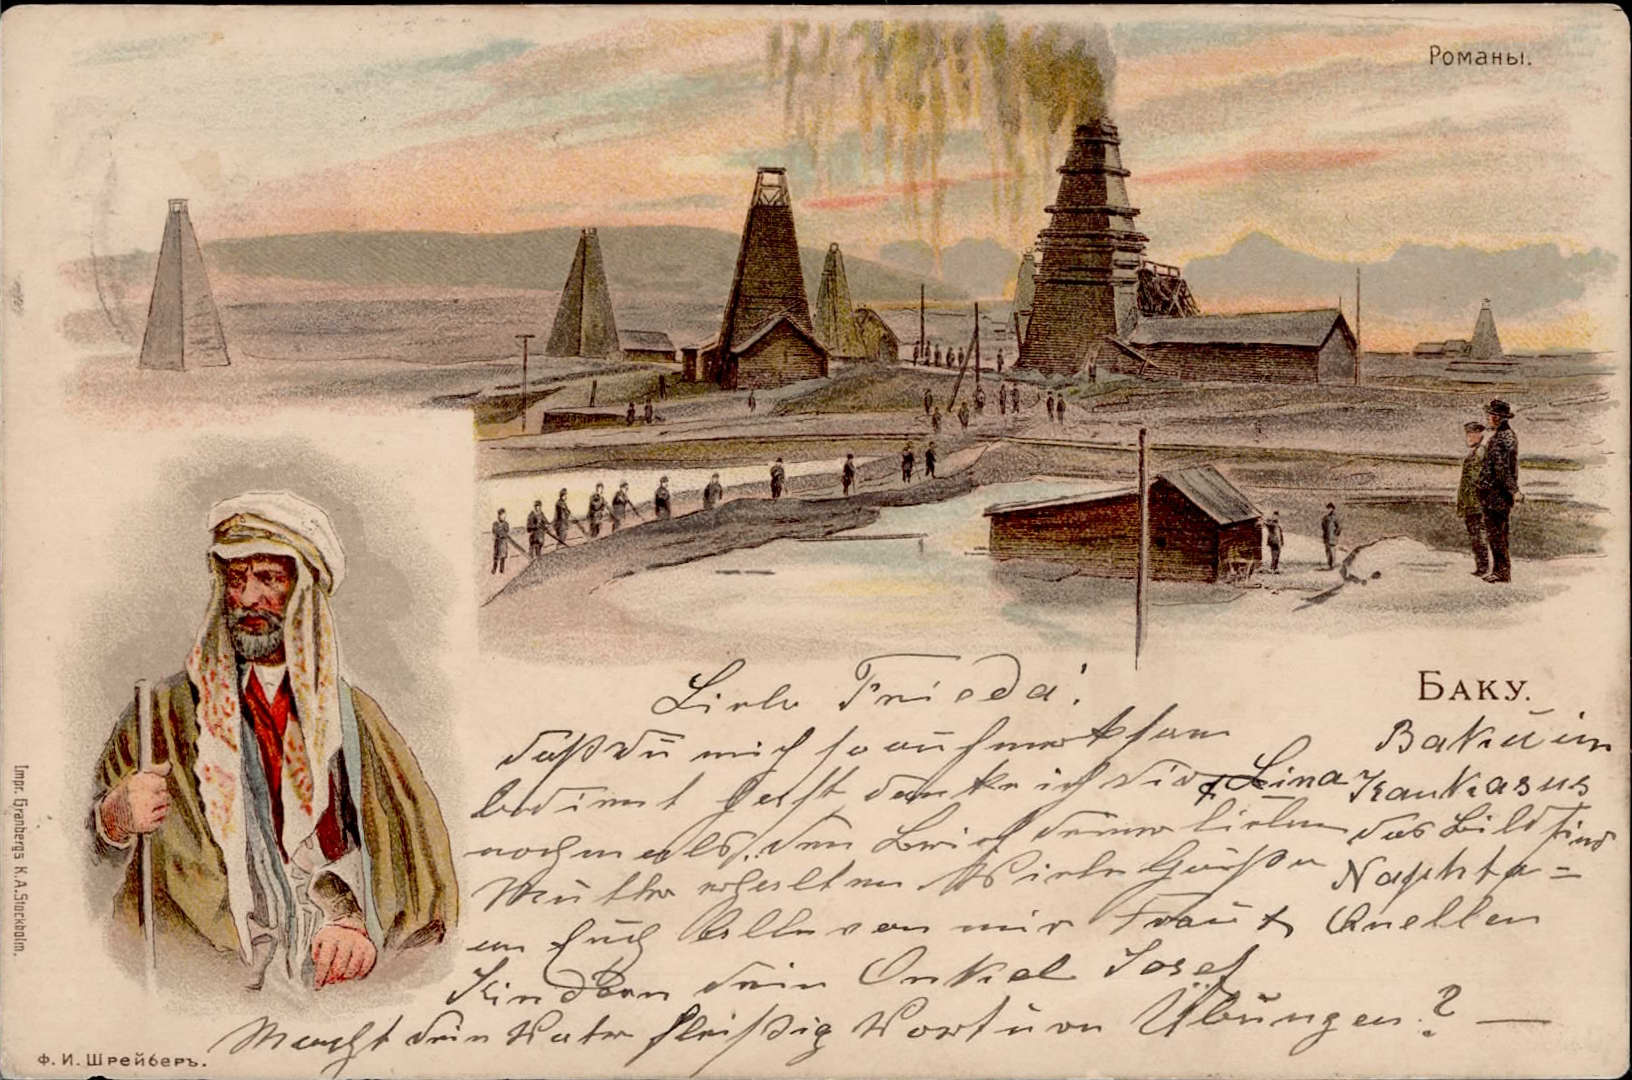 Романы.
Баку.
Liebe Frieda!
daß du mich so aufmerksam
bedient hast danke ich dir & Lina
nochmals, den Brief deiner lieben
Mutter erhalten Viele Grüße
an Euch Alle von mir Frau &
Kindern dein Onkel Josef
Macht dein Vater fleißig Vortur Übungen? —
Baku im
Kaukasus
das Bild sind
Naphta=
Quellen
Impr. Granbergs K.A. Stockholm.
Ф. И. Шрейберъ.